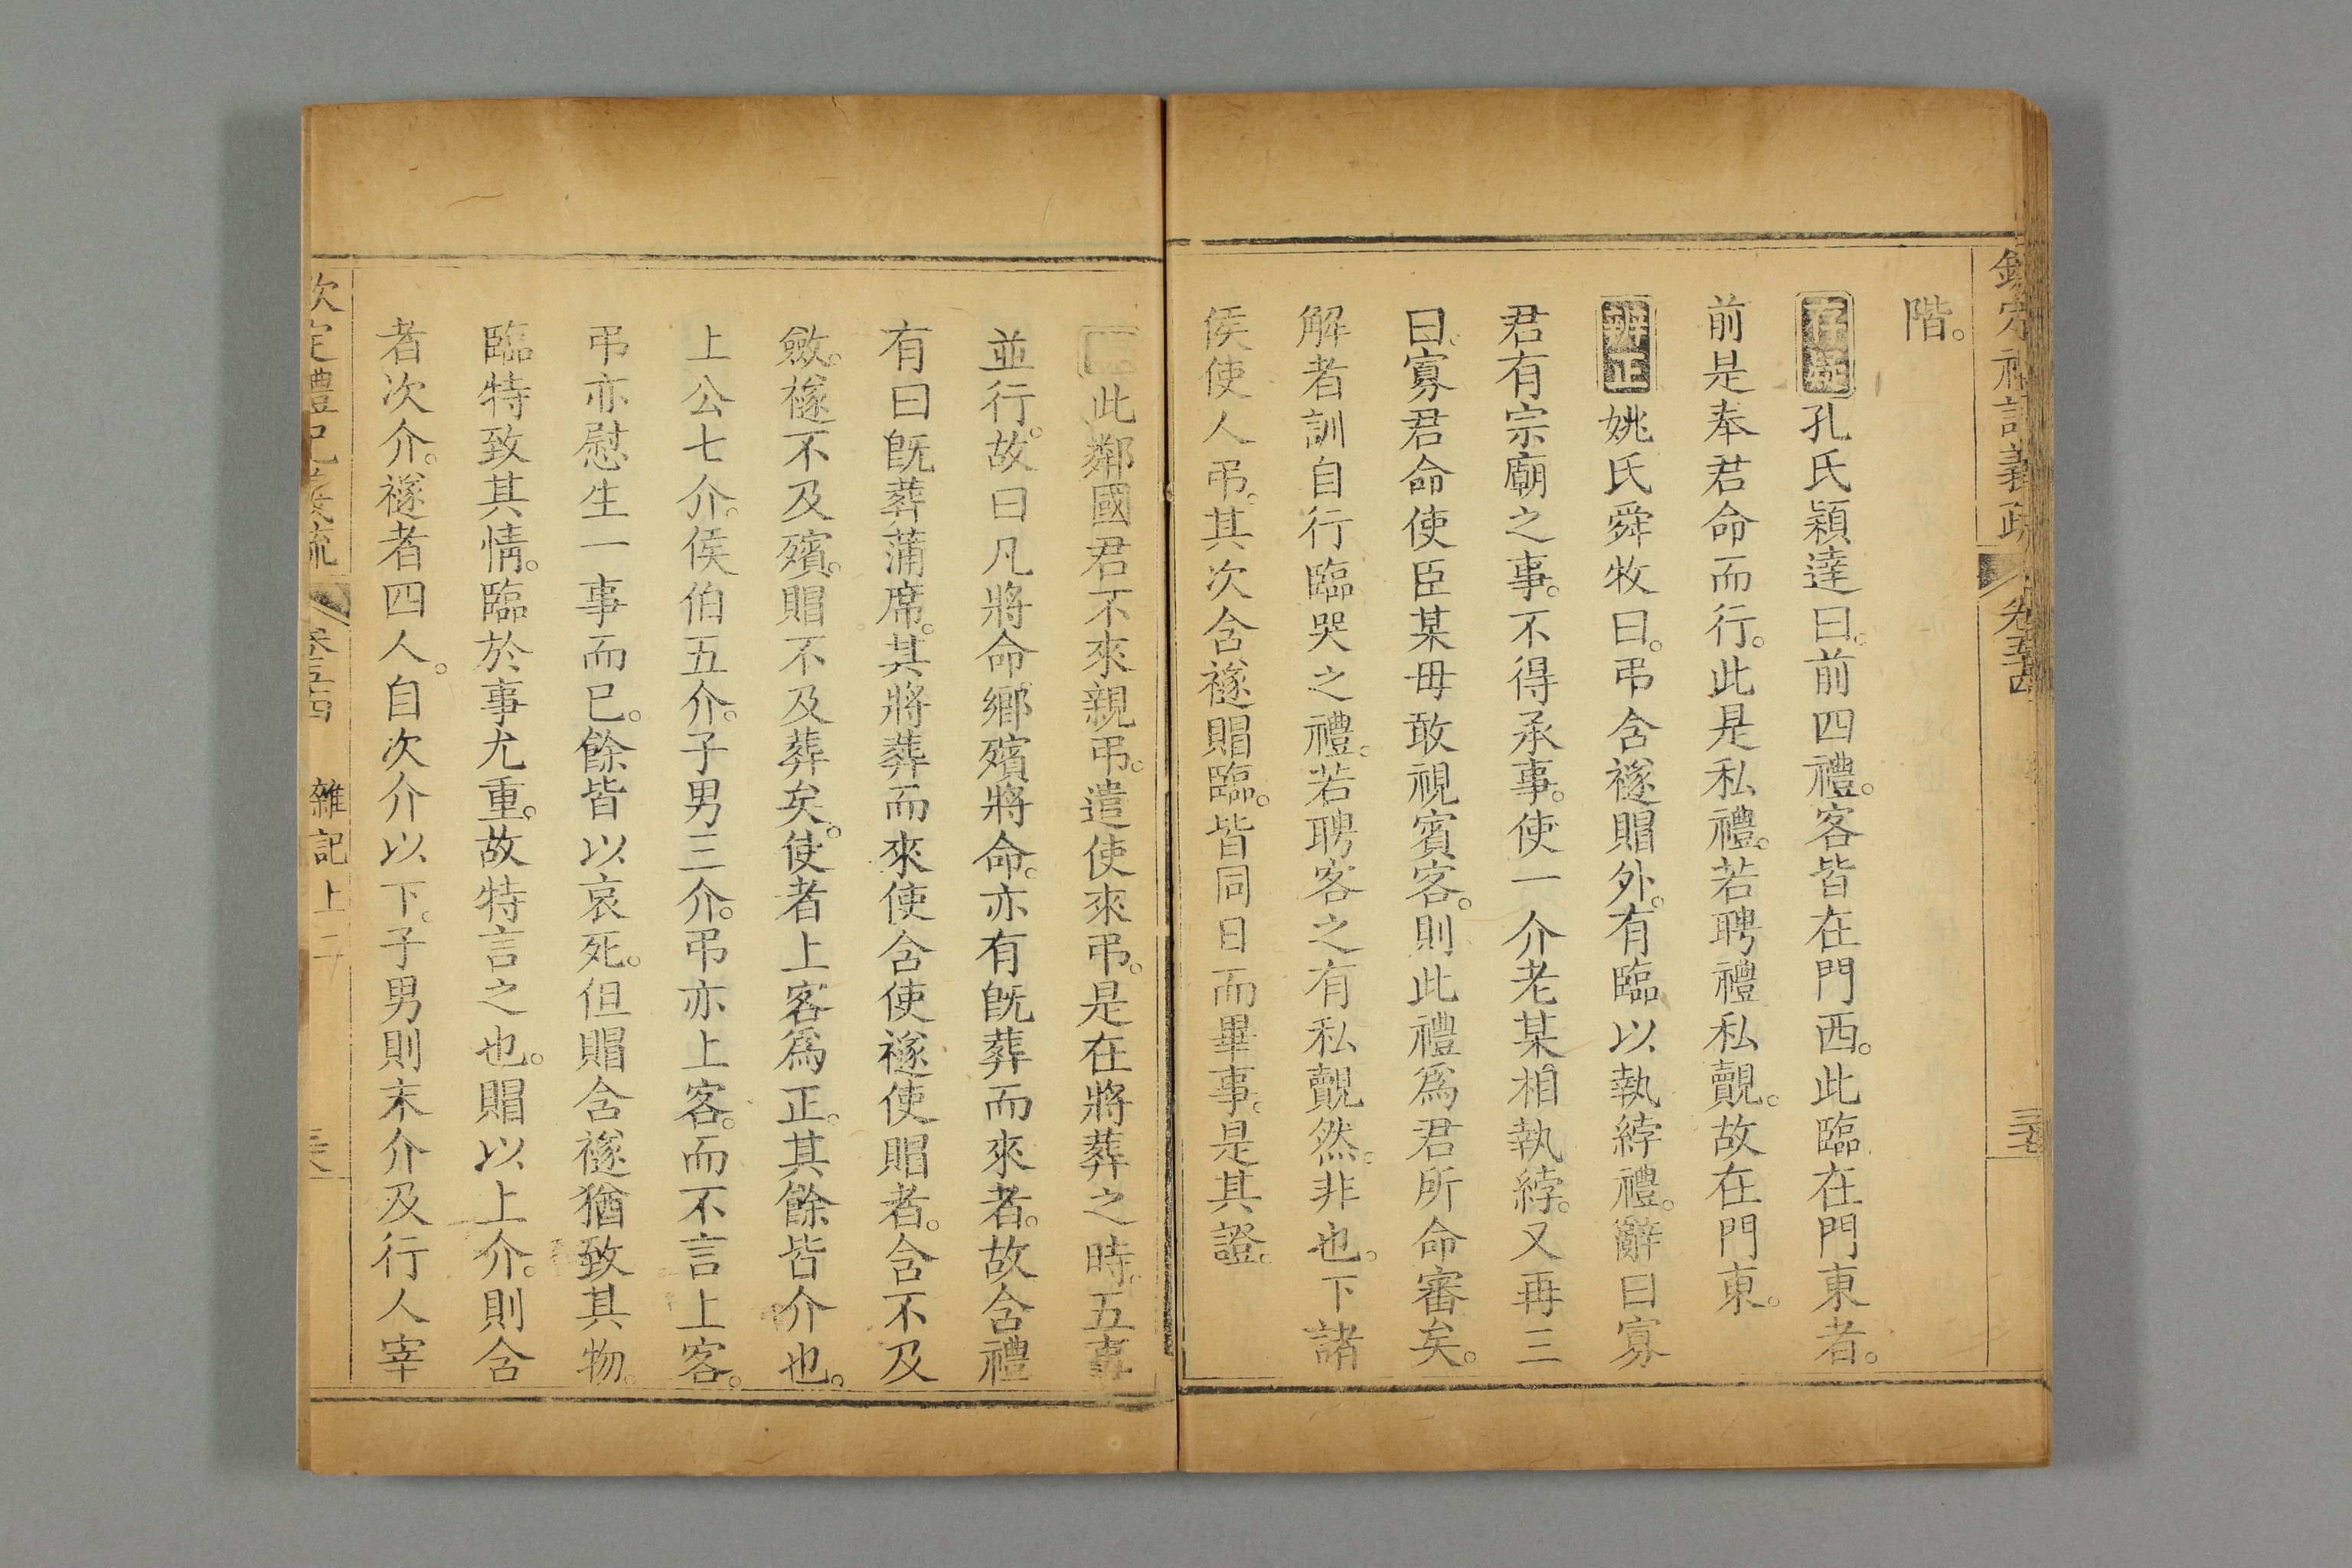 欽定禮記義疏 卷五十四
階。
存疑 孔氏穎達曰。前四禮。客皆在門西。此臨在門東者。
前是奉君命而行。此是私禮。若聘禮私覿。故在門東。
辨正 姚氏舜牧曰。弔含襚賵外。有臨以執綍禮。辭曰寡
君有宗廟之事。不得承事。使一介老某相執綍。又再三
曰。寡君命使臣某毋敢視賓客。則此禮爲君所命審矣。
解者訓自行臨哭之禮。若聘客之有私覿然。非也。下諸
侯使人弔。其次含襚賵臨。皆同日而畢事。是其證。
此鄰國君不來親弔。遣使來弔。是在將葬之時。五事
並行。故曰凡將命鄉殯將命。亦有旣葬而來者。故含禮
有曰旣葬蒲席。其將葬而來使含使襚使賵者。含不及
斂。襚不及殯。賵不及葬矣。使者上客爲正。其餘皆介也。
上公七介。侯伯五介。子男三介。弔亦上客。而不言上客。
弔亦慰生一事而已。餘皆以哀死。但賵含襚猶致其物。
臨特致其情。臨於事尤重。故特言之也。賵以上介。則含
者次介。襚者四人。自次介以下。子男則末介及行人宰
欽定禮記義疏 卷五十四 雜記上